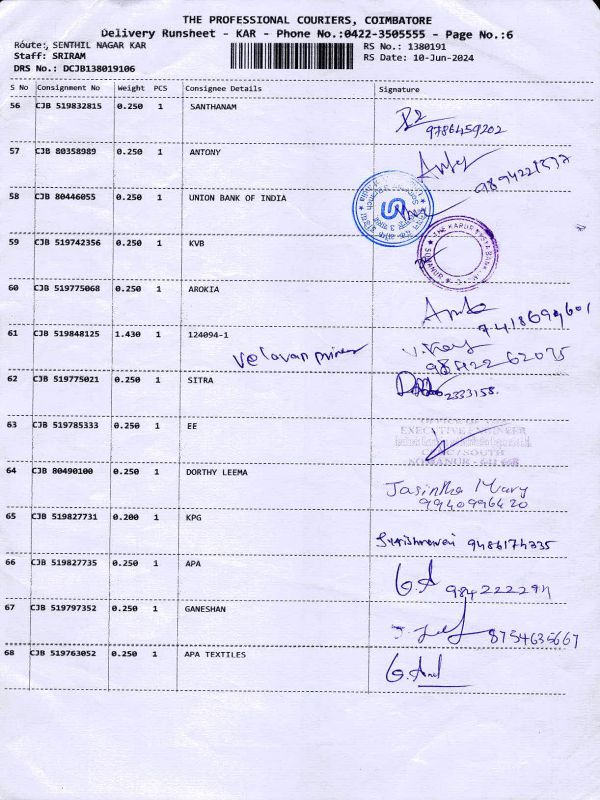 THE PROFESSIONAL COURIERS, COIMBATORE
Delivery Runsheet - KAR - Phone No.:0422-3505555 - Page No.:6
Route:, SENTHIL NAGAR KAR
RS No.: 1380191
Staff: SRIRAM
RS Date: 10-Jun-2024
DRS No.: DCJB138019106
S No Consignment No Weight PCS Consignee Details Signature
56 CJB 519832815 0.250 1 SANTHANAM
9786459202
57 CJB 80358989 0.250 1 ANTONY
58 CJB 80446055 0.250 1 UNION BANK OF INDIA
59 CJB 519742356 0.250 1 KVB
60 CJB 519775068 0.250 1 AROKIA
7418699601
61 CJB 519848125 1.430 1 124094-1
62 CJB 519775021 0.250 1 SITRA
2333158
63 CJB 519785333 0.250 1 EE
EXECUTIVE ENGINEER
64 CJB 80490100 0.250 1 DORTHY LEEMA
Jasintha Mary
9940996420
65 CJB 519827731 0.200 1 KPG
9486174335
66 CJB 519827735 0.250 1 APA
67 CJB 519797352 0.250 1 GANESHAN
8754635667
68 CJB 519763052 0.250 1 APA TEXTILES